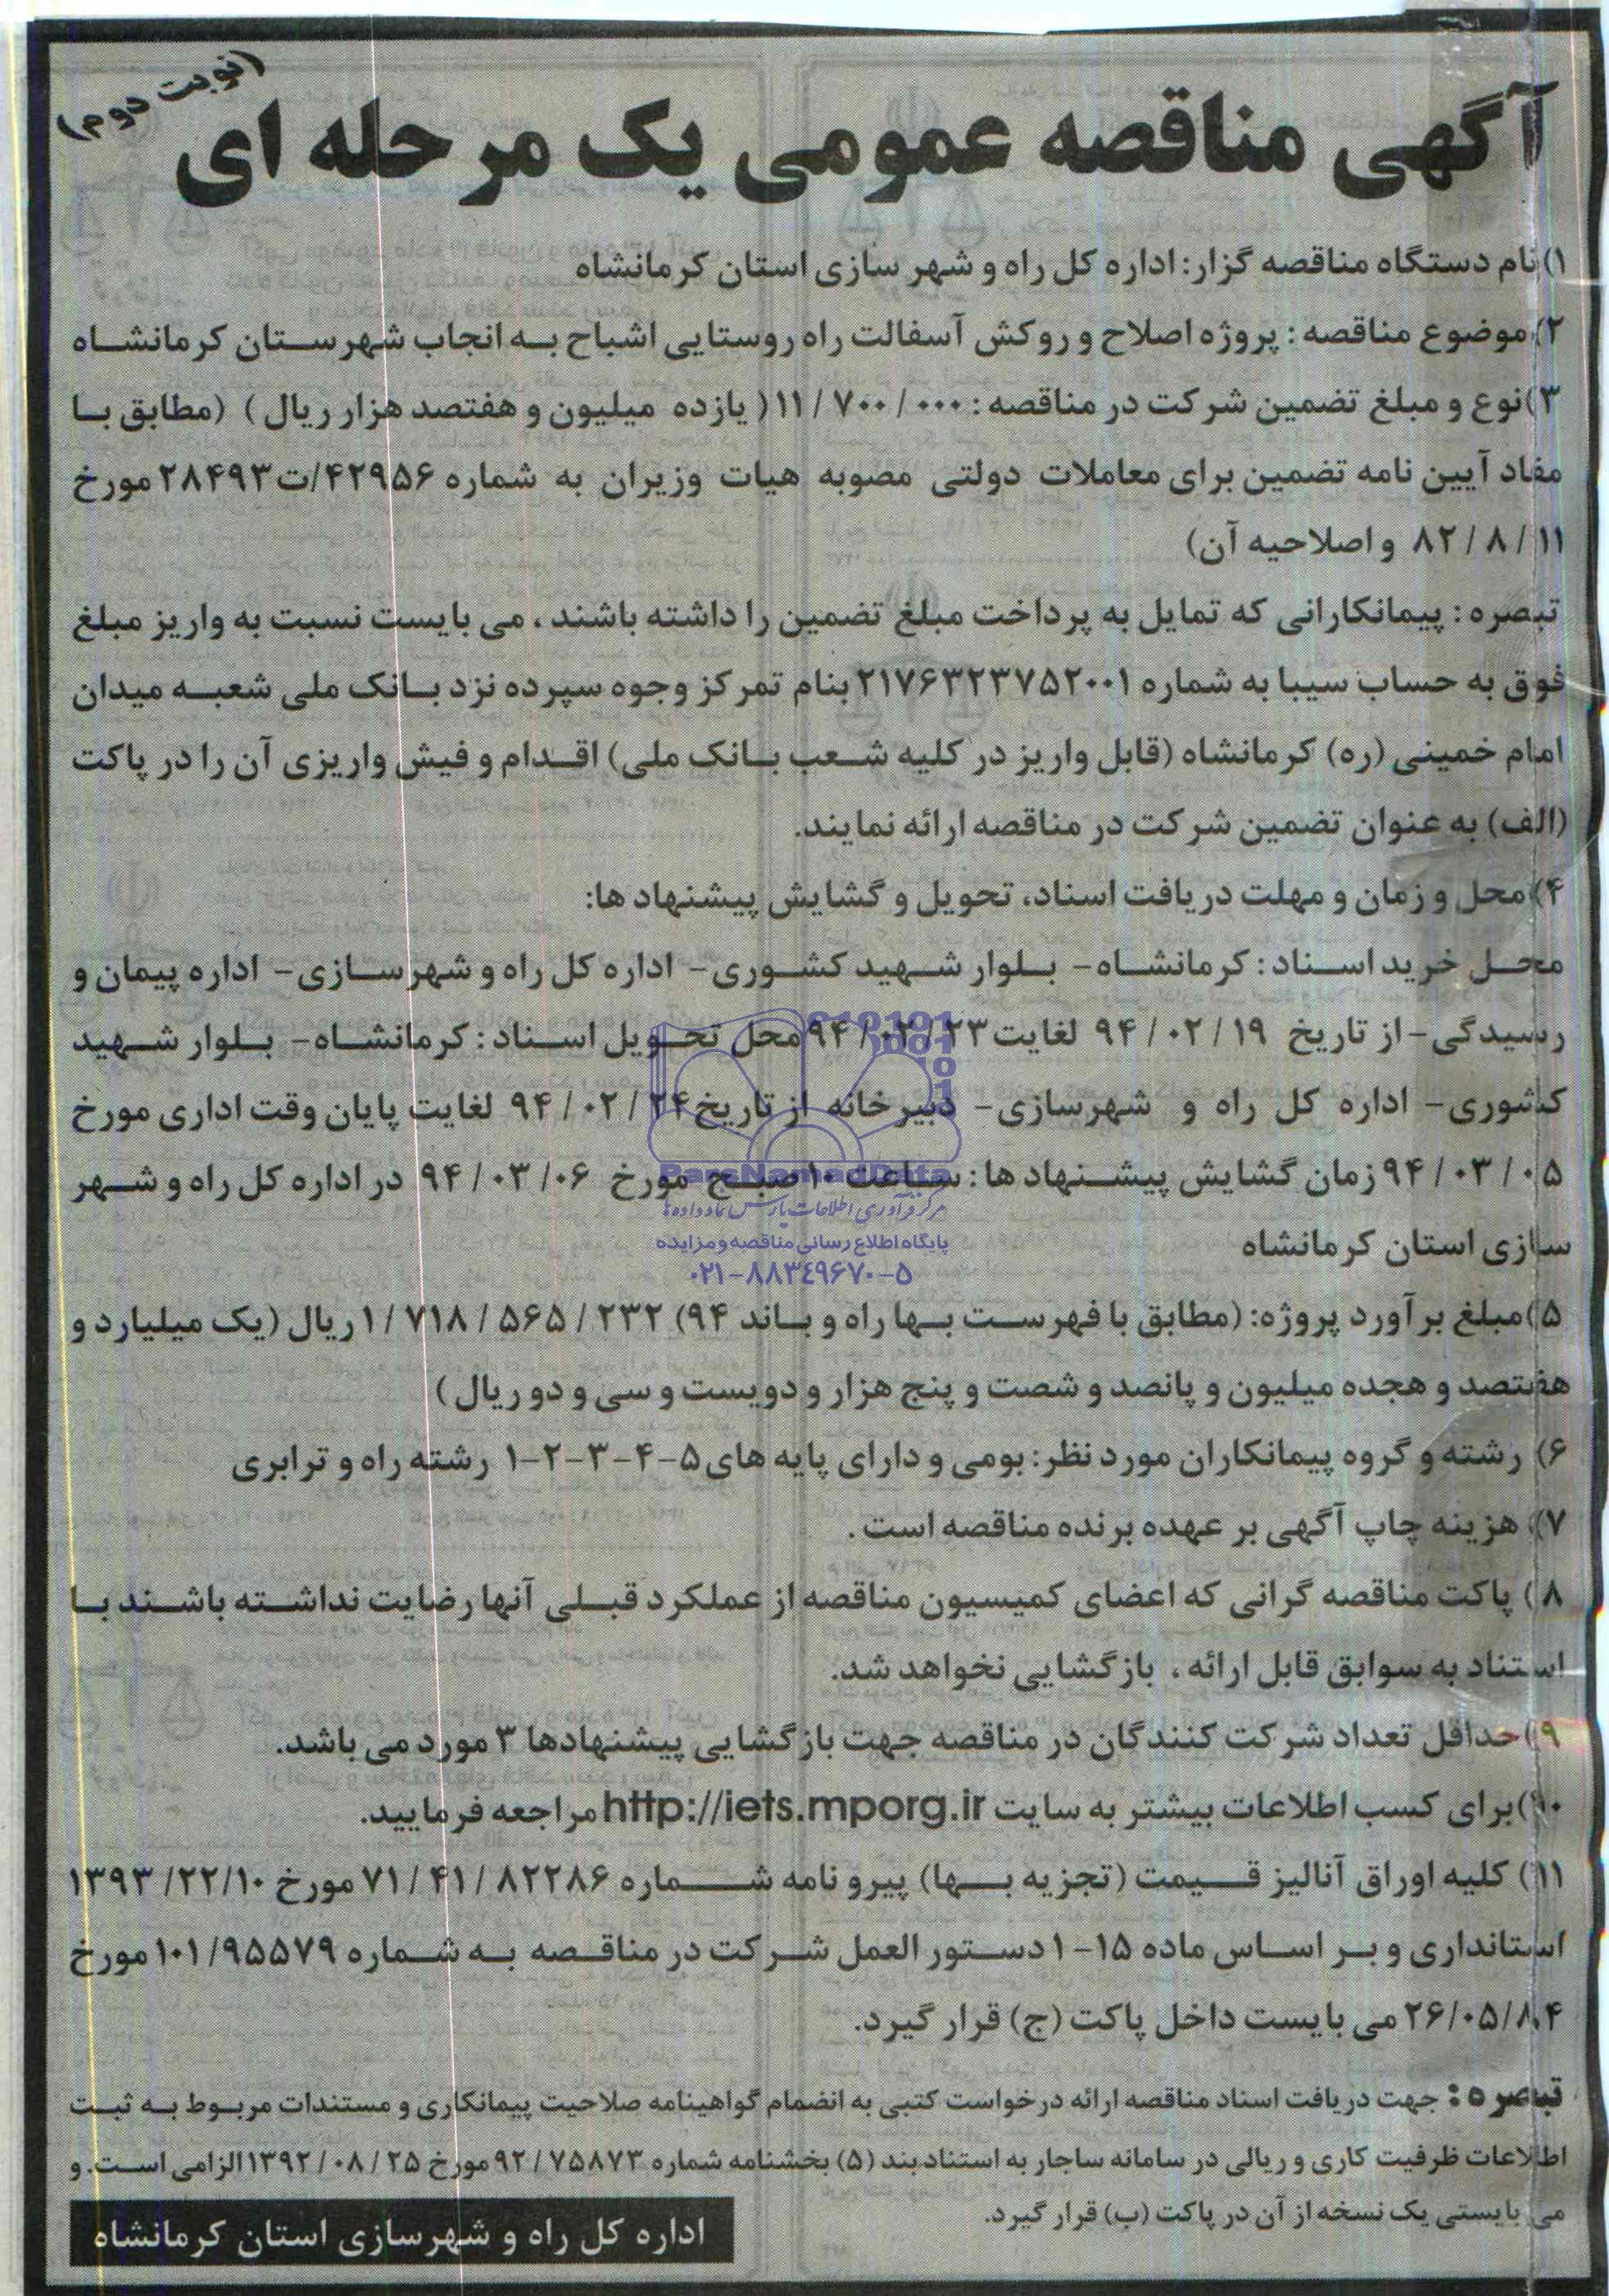 (نوبت دوم)
آگهی مناقصه عمومی یک مرحله ای
۱)نام دستگاه مناقصه گزار: اداره کل راه و شهر سازی استان کرمانشاه
۲)موضوع مناقصه : پروژه اصلاح و روکش آسفالت راه روستایی اشباح به انجاب شهرستان کرمانشاه
۳)نوع و مبلغ تضمین شرکت در مناقصه : ۱۱/۷۰۰/۰۰۰( یازده میلیون و هفتصد هزار ریال ) (مطابق با
مفاد آیین نامه تضمین برای معاملات دولتی مصوبه هیات وزیران به شماره ۴۲۹۵۶/ت۲۸۴۹۳ مورخ
۸۲/۸/۱۱ و اصلاحیه آن)
تبصره : پیمانکارانی که تمایل به پرداخت مبلغ تضمین را داشته باشند ، می بایست نسبت به واریز مبلغ
فوق به حساب سیبا به شماره ۲۱۷۶۳۲۳۷۵۲۰۰۱ بنام تمرکز وجوه سپرده نزد بانک ملی شعبه میدان
امام خمینی (ره) کرمانشاه (قابل واریز در کلیه شعب بانک ملی) اقدام و فیش واریزی آن را در پاکت
(الف) به عنوان تضمین شرکت در مناقصه ارائه نمایند.
۴)محل و زمان و مهلت دریافت اسناد، تحویل و گشایش پیشنهاد ها:
محل خرید اسناد : کرمانشاه- بلوار شهید کشوری- اداره کل راه و شهرسازی- اداره پیمان و
رسیدگی- از تاریخ ۹۴/۰۲/۱۹ لغایت ۹۴/۰۲/۲۳ محل تحویل اسناد : کرمانشاه- بلوار شهید
کشوری- اداره کل راه و شهرسازی- دبیرخانه از تاریخ ۹۴/۰۲/۲۴ لغایت پایان وقت اداری مورخ
۹۴/۰۳/۰۵ زمان گشایش پیشنهاد ها : ساعت ۱۰ صبح مورخ ۹۴/۰۳/۰۶ در اداره کل راه و شهر
سازی استان کرمانشاه
ParsNamadData
مرکز فرآوری اطلاعات پارس نماد داده ها
پایگاه اطلاع رسانی مناقصه و مزایده
۰۲۱-۸۸۳۴۹۶۷۰-۵
۵)مبلغ برآورد پروژه: (مطابق با فهرست بها راه و باند ۹۴) ۱/۷۱۸/۵۶۵/۲۳۲ ریال (یک میلیارد و
هفتصد و هجده میلیون و پانصد و شصت و پنج هزار و دویست و سی و دو ریال )
۶) رشته و گروه پیمانکاران مورد نظر: بومی و دارای پایه های ۵-۴-۳-۲-۱ رشته راه و ترابری
۷) هزینه چاپ آگهی بر عهده برنده مناقصه است .
۸) پاکت مناقصه گرانی که اعضای کمیسیون مناقصه از عملکرد قبلی آنها رضایت نداشته باشند با
استناد به سوابق قابل ارائه ، بازگشایی نخواهد شد.
۹)حداقل تعداد شرکت کنندگان در مناقصه جهت بازگشایی پیشنهادها ۳ مورد می باشد.
۱۰)برای کسب اطلاعات بیشتر به سایت http://iets.mporg.ir مراجعه فرمایید.
۱۱) کلیه اوراق آنالیز قیمت (تجزیه بها) پیرو نامه شماره ۷۱/۴۱/۸۲۲۸۶ مورخ ۱۳۹۳/۲۲/۱۰
استانداری و بر اساس ماده ۱۵-۱ دستور العمل شرکت در مناقصه به شماره ۱۰۱/۹۵۵۷۹ مورخ
۲۶/۰۵/۸۴ می بایست داخل پاکت (ج) قرار گیرد.
تبصره : جهت دریافت اسناد مناقصه ارائه درخواست کتبی به انضمام گواهینامه صلاحیت پیمانکاری و مستندات مربوط به ثبت
اطلاعات ظرفیت کاری و ریالی در سامانه ساجار به استناد بند (۵) بخشنامه شماره ۹۲/۷۵۸۷۳ مورخ ۱۳۹۲/۰۸/۲۵ الزامی است. و
می بایستی یک نسخه از آن در پاکت (ب) قرار گیرد.
اداره کل راه و شهرسازی استان کرمانشاه